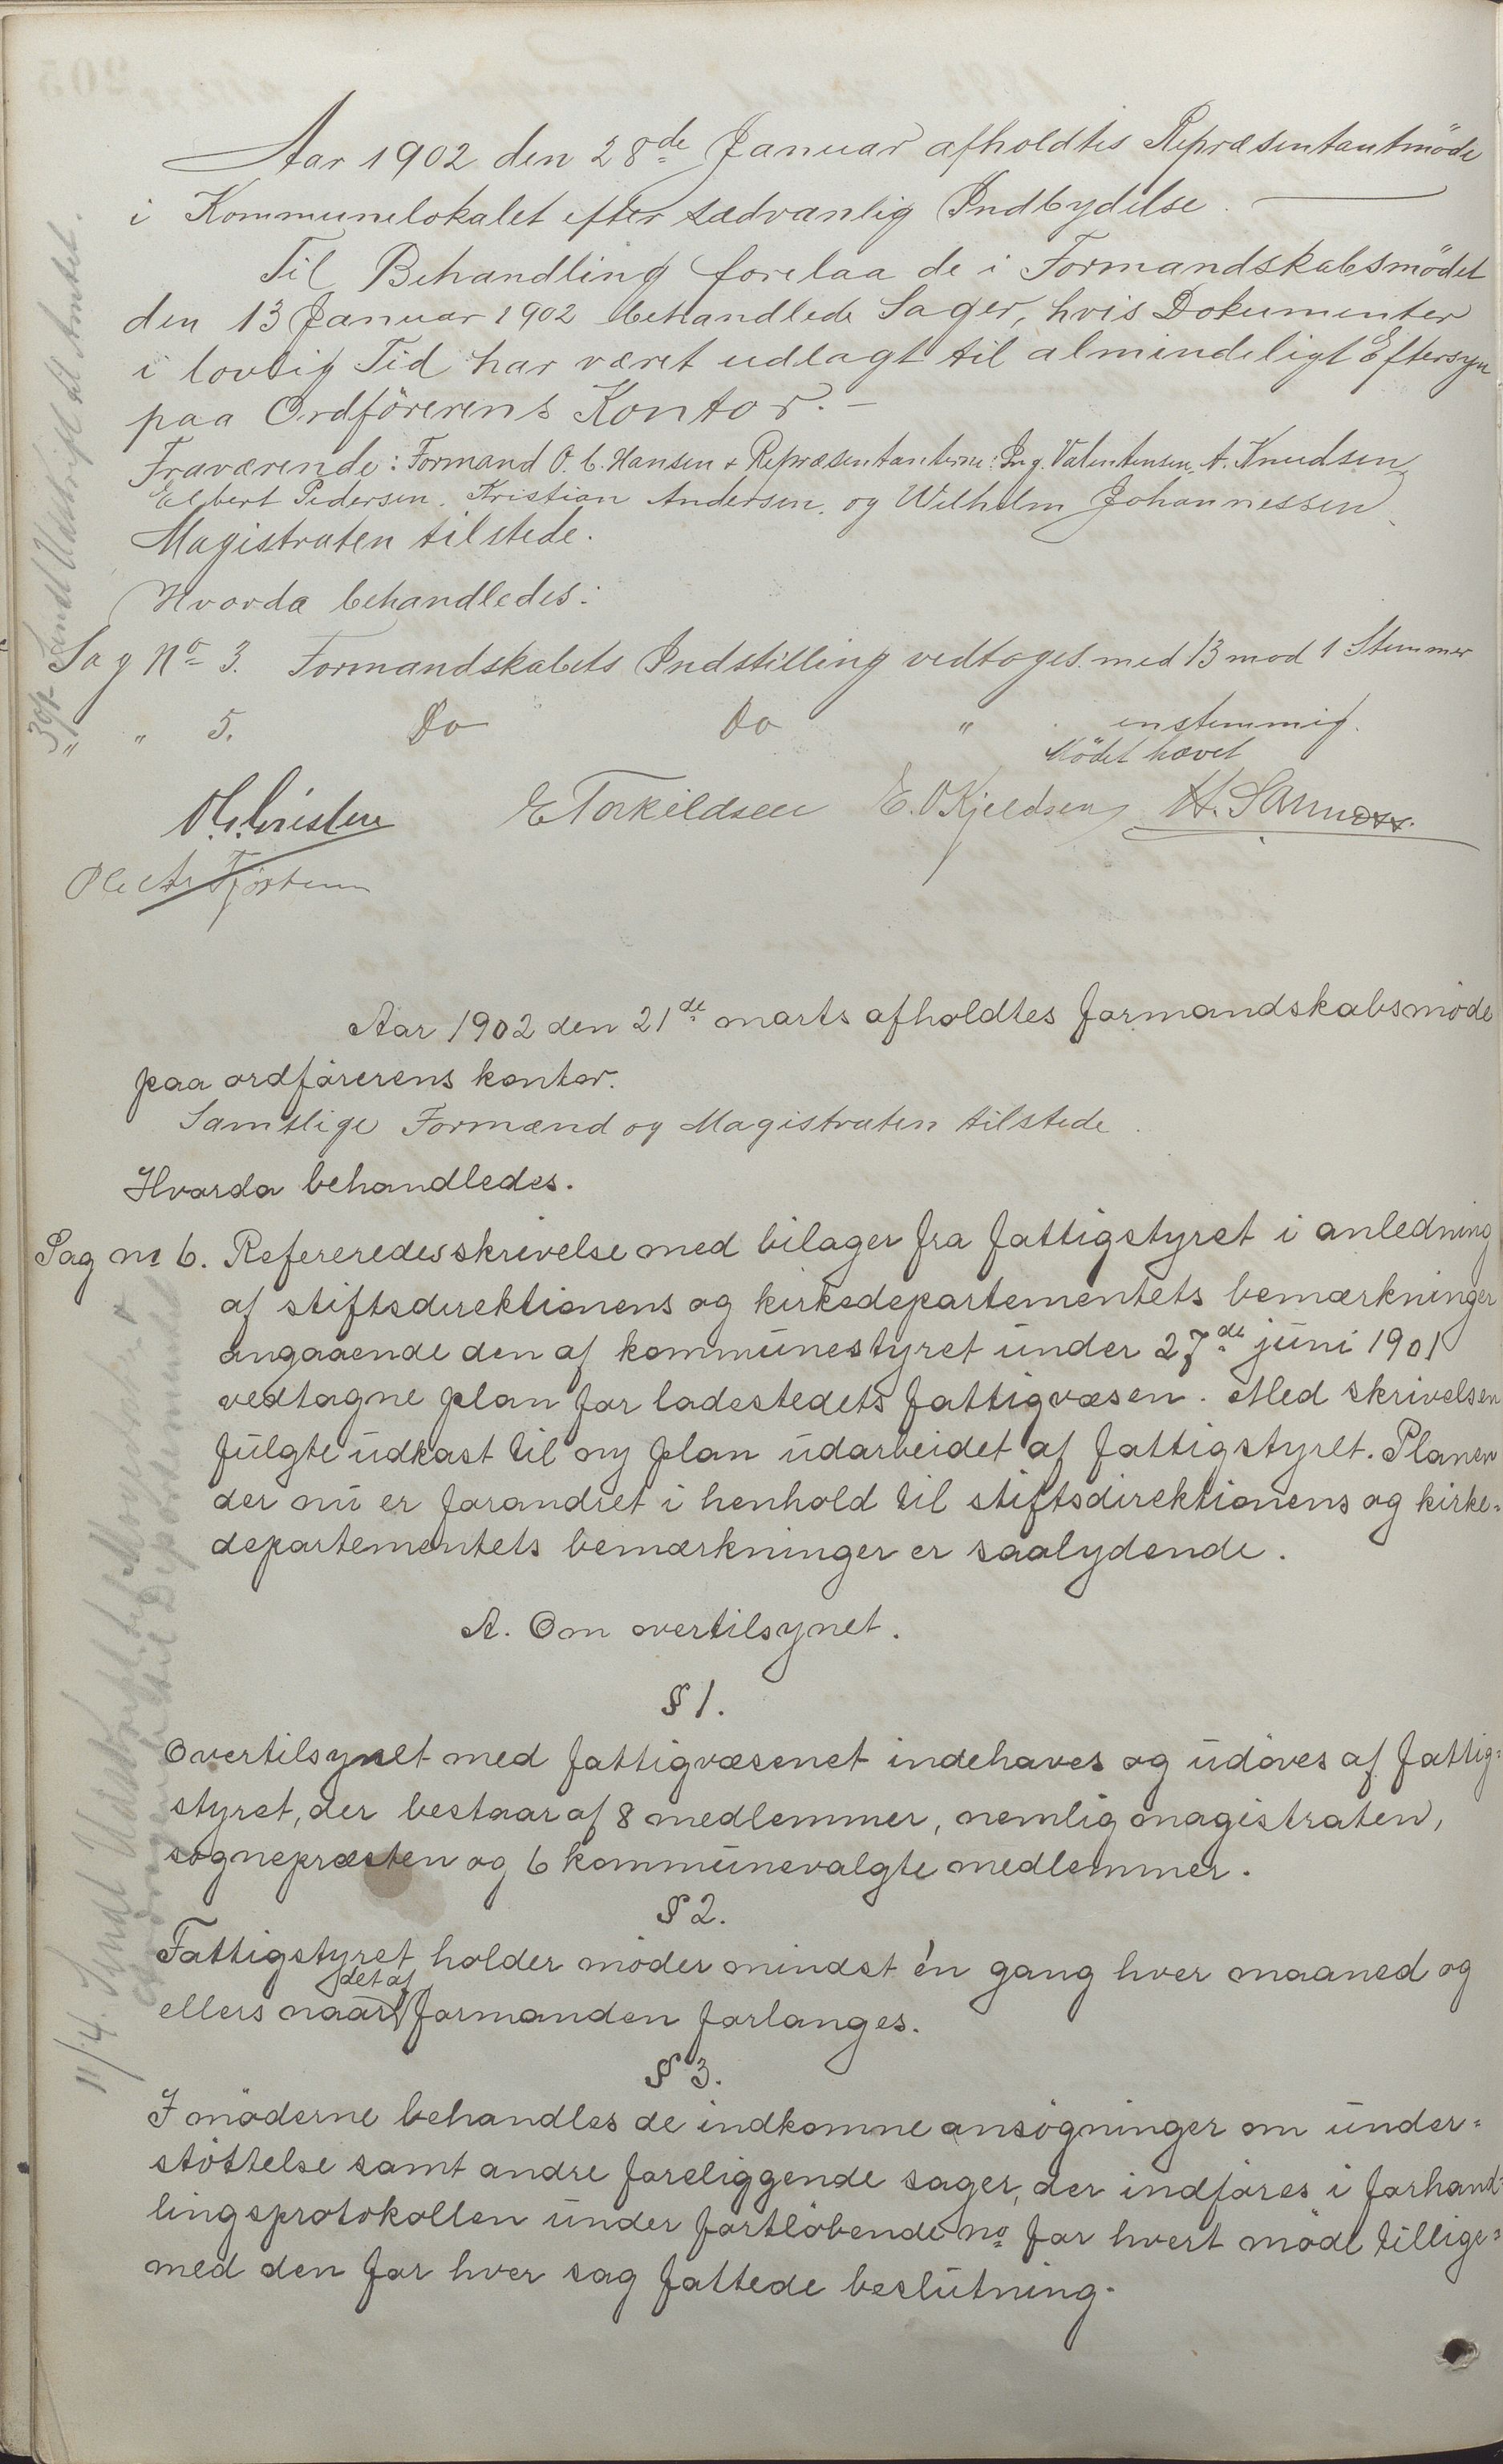 Aar 1902 den 28de Januar afholdtes Repræsentantmöde
i Kommunelokalet efter sædvanlig Indbydelse.
Til Behandling forelaa de i Formandskabsmödet
den 13 Januar 1902 behandlede Sager, hvis Dokumenter
i lovlig Tid har været udlagt til almindeligt Eftersyn
paa Ordförerens Kontor. –
Fraværende: Formand O. C. Hansen & Repræsentanterne: Ing. Valentinsen, A. Knudsen,
Elbert Pedersen, Kristian Andersen, og Wilhelm Johannessen
Magistraten tilstede.
Hvorda behandledes:
Sag No 3. Formandskabets Indstilling vedtoges med 13 mod 1 Stemmer
" " 5. Do Do " enstemmig.
Mödet hævet
E Torkildsen E. O Kjeldsen
30/1 Sendt Udskrift til Amtet.
Aar 1902 den 21de marts afholdtes formandskabsmöde
paa ordförerens kontor.
Samtlige Formænd og Magistraten tilstede.
Hvorda behandledes.
Sag nr 6. Refereredes skrivelse med bilager fra fattigstyret i anledning
af stiftsdirektionens og kirkedepartementets bemærkninger
angaaende den af kommunestyret under 27de juni 1901
vedtagne plan for ladestedets fattigvæsen. Med skrivelsen
fulgte udkast til ny plan udarbeidet af fattigstyret. Planen
der nu er forandret i henhold til stiftsdirektionens og kirke-
departementets bemærkninger er saalydende.
A. Om overtilsynet.
§ 1.
Overtilsynet med fattigvæsenet indehaves og udöves af fattig-
styret, der bestaar af 8 medlemmer, nemlig magistraten,
sognepræsten og 6 kommunevalgte medlemmer.
§ 2.
Fattigstyret holder möder mindst én gang hver maaned og
ellers naar det af formanden forlanges.
§ 3.
I möderne behandles de indkomne ansögninger om under-
stöttelse samt andre foreliggende sager, der indföres i forhand-
lingsprotokollen under fortlöbende no for hvert möde tillige-
med den for hver sag fattede beslutning.
11/4. Sendt Udskrift til